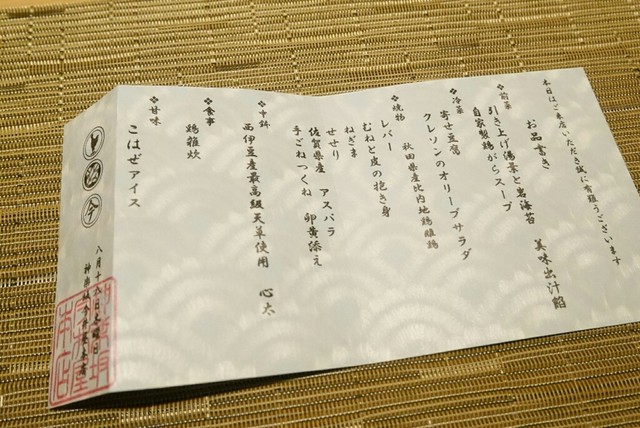 本日はご来店いただき誠に有難うございます
お品書き
❖前菜
引き上げ湯葉と岩海苔 美味出汁餡
自家製鶏がらスープ
❖冷菜
寄せ豆腐
クレソンのオリーブサラダ
❖焼物
秋田県産比内地鶏雌鶏
レバー
むねと皮の抱き身
ねぎま
せせり
佐賀県産 アスパラ
手ごねつくね 卵黄添え
❖中鉢
西伊豆産最高級天草使用 心太
❖食事
鶏雑炊
❖甘味
こはぜアイス
今
八月十八日
曜日
神楽坂